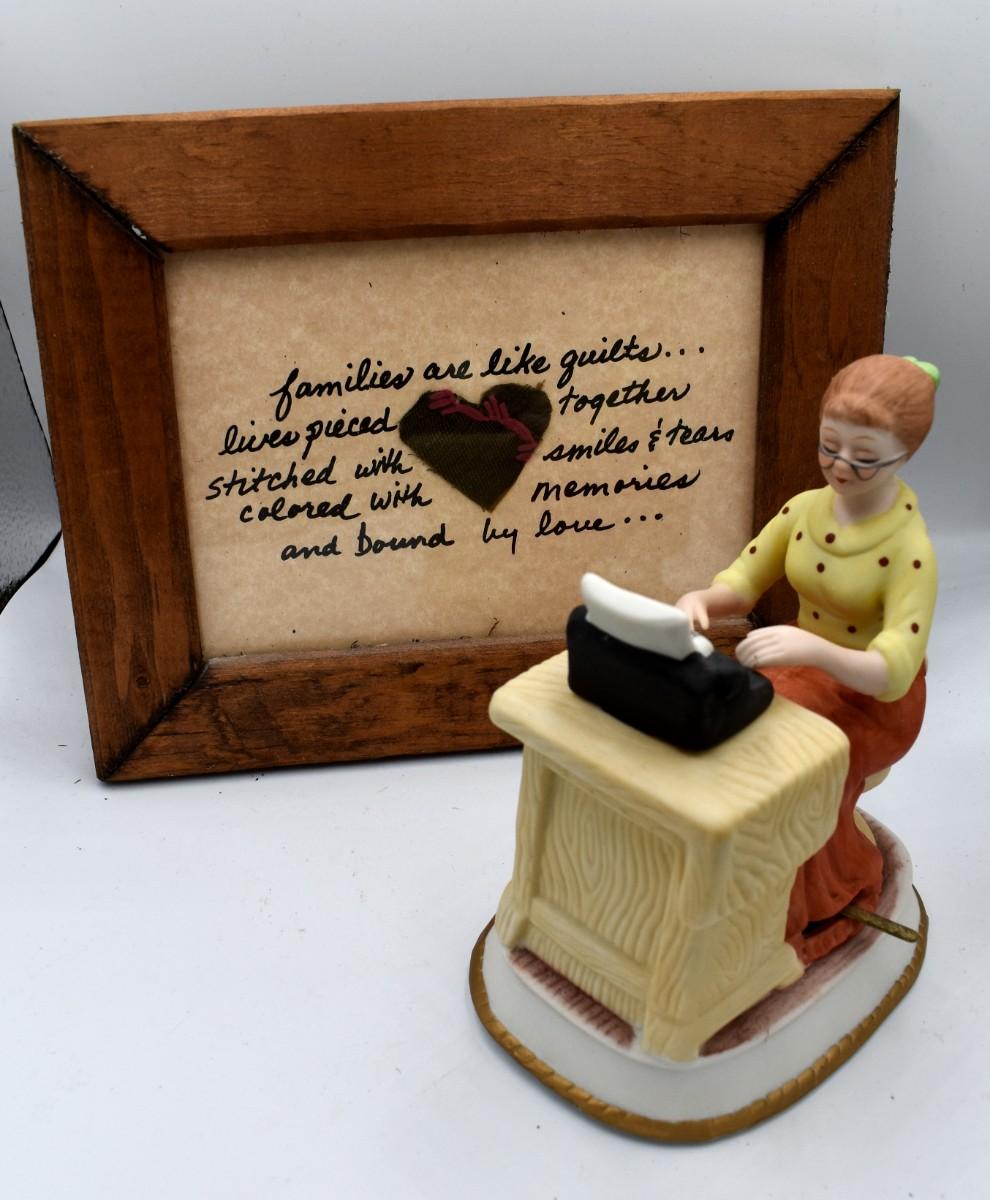 families are like quilts...
lives pieced together
stitched with smiles & tears
colored with memories
and bound by love...